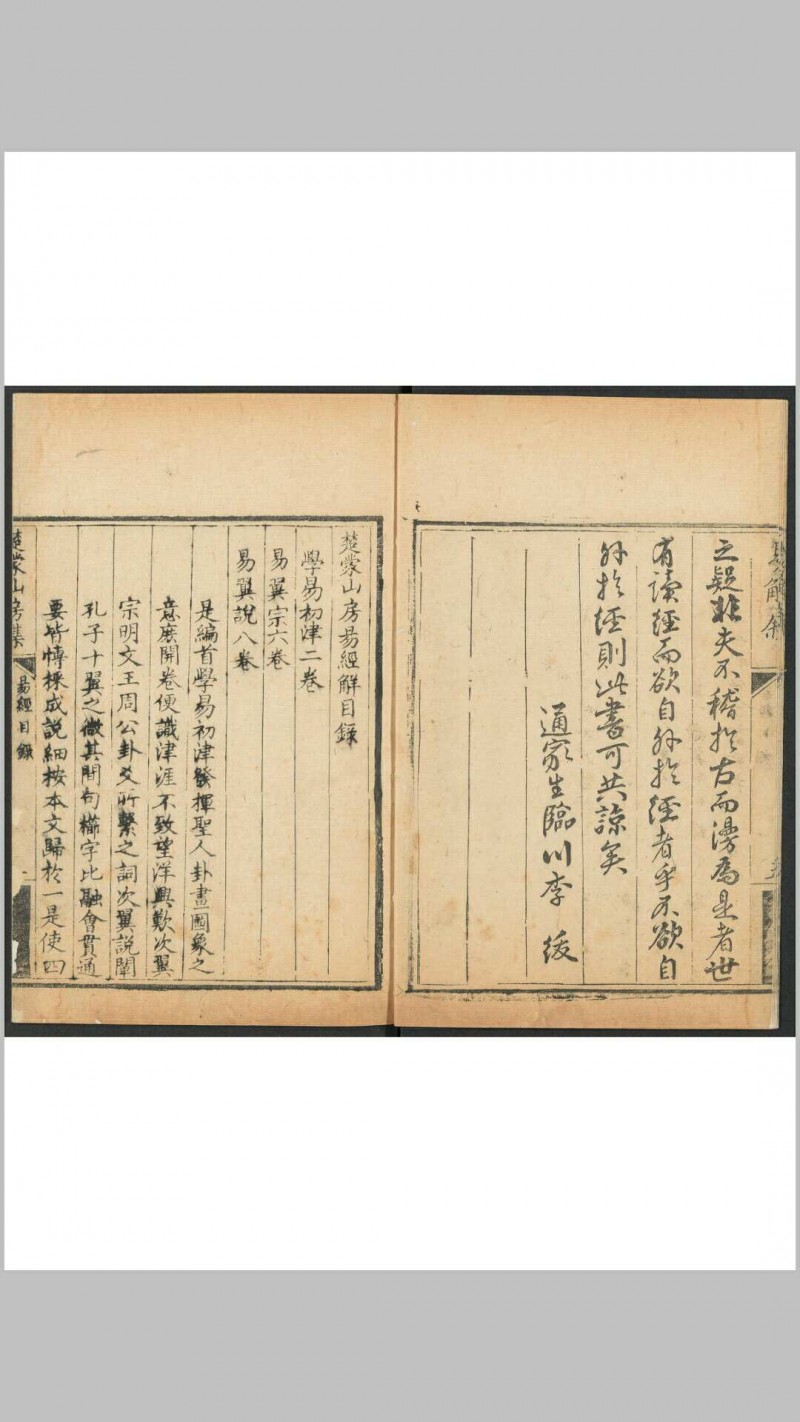 之疑非夫不稽於古而漫為是者世
有讀經而欲自外於經者乎不欲自
外於經則此書可共諒矣
通家生臨川李紱
楚蒙山房易經解目錄
學易初津二卷
易翼宗六卷
易翼說八卷
是編首學易初津發揮聖人卦畫圖象之
意庶開卷便識津涯不致望洋興歎次翼
宗明文王周公卦爻所繫之詞次翼說闡
孔子十翼之微其間句櫛字比融會貫通
要皆慱採成說細按本文歸於一是使四
楚蒙山房集
易經目錄